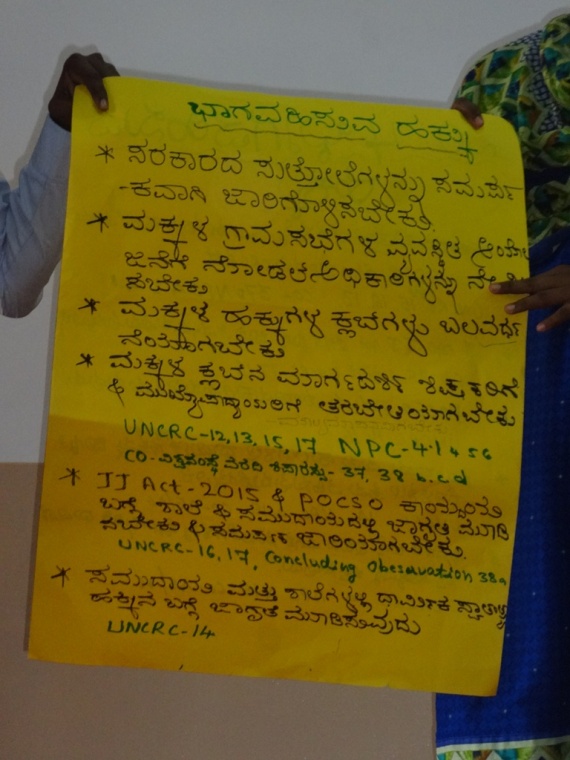 ಭಾಗವಹಿಸುವ ಹಕ್ಕು
* ಸರಕಾರದ ಸುತ್ತೋಲೆಗಳನ್ನು ಸಮರ್ಪ
-ಕವಾಗಿ ಜಾರಿಗೊಳಿಸಬೇಕು.
* ಮಕ್ಕಳ ಗ್ರಾಮಸಭೆಗಳ ವ್ಯವಸ್ಥಿತ ಆಯೋ
ಜನೆಗೆ ನೋಡಲ್ ಅಧಿಕಾರಿಗಳನ್ನು
ಸಬೇಕು
* ಮಕ್ಕಳ ಹಕ್ಕುಗಳ ಕ್ಲಬ್‌ಗಳು ಬಲವರ್ಧ
ನೆಯಾಗಬೇಕು
* ಮಕ್ಕಳ ಕ್ಲಬ್‌ನ ಮಾರ್ಗದರ್ಶಿ ಶಿಕ್ಷಕರಿಗೆ
& ಮುಖ್ಯೋಪಾಧ್ಯಾಯರಿಗೆ ತರಬೇತಿಯಾಗಬೇಕು
UNCRC-12,13,15,17 NPC-4.1 4 5 6
CO- ವರದಿ ಶಿಫಾರಸ್ಸು- 37, 38 b.c.d
* JJ Act-2015 & POCSO ಕಾಯ್ದೆಯ
ಬಗ್ಗೆ ಶಾಲೆ & ಸಮುದಾಯದಲ್ಲಿ ಜಾಗೃತಿ ಮೂಡಿ
ಸಬೇಕು & ಸಮರ್ಪಕ ಜಾರಿಯಾಗಬೇಕು.
UNCRC-16,17, Concluding Obesavation 38a
* ಸಮುದಾಯ ಮತ್ತು ಶಾಲೆಗಳಲ್ಲಿ ಧಾರ್ಮಿಕ
ಹಕ್ಕಿನ ಬಗ್ಗೆ ಜಾಗೃತಿ ಮೂಡಿಸುವುದು
UNCRC-14